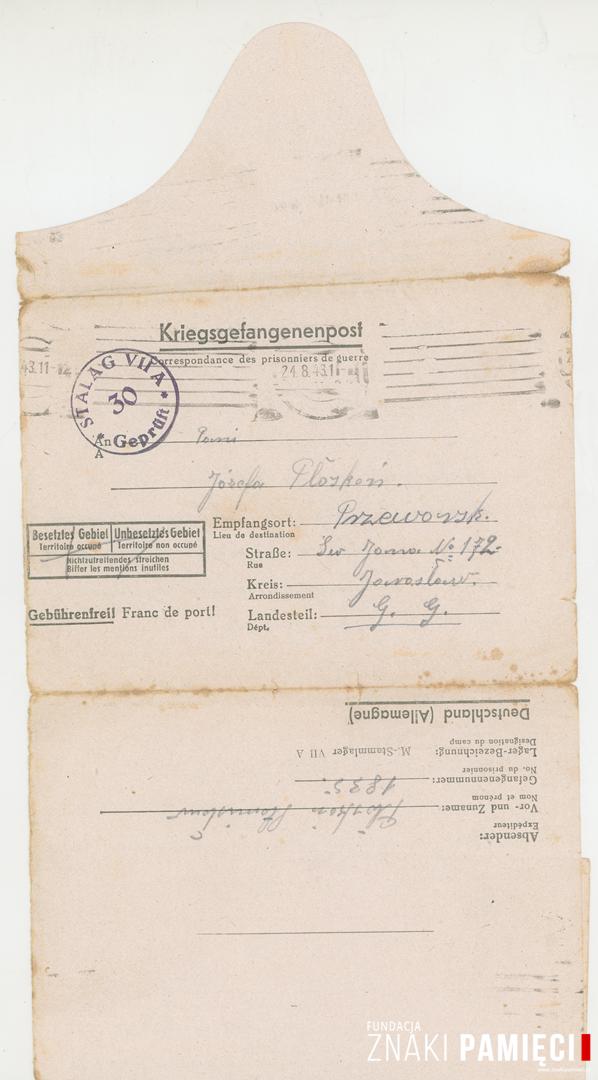 Kriegsgefangenenpost
Correspondance des prisonniers de guerre
43.11
24.8.43.11
STALAG VII A
30
Geprüft
An Pani
A
Józefa Płoskoń.
Empfangsort: Przeworsk.
Lieu de destination
Besetztes Gebiet Unbesetztes Gebiet
Territoire occupé Territoire non occupé
Nichtzutreffendes streichen
Biffer les mentions inutiles
Straße: Św Jana № 172
Rue
Kreis: Jarosław.
Arrondissement
Gebührenfrei! Franc de port!
Landesteil: G. G.
Dépt.
Deutschland (Allemagne)
Lager-Bezeichnung: M.-Stammlager VII A
Désignation du camp
Gefangenennummer: 1835.
No. du prisonnier
Vor- und Zuname: Płoskoń Stanisław
Nom et prénom
Absender:
Expéditeur
FUNDACJA
ZNAKI PAMIĘCI